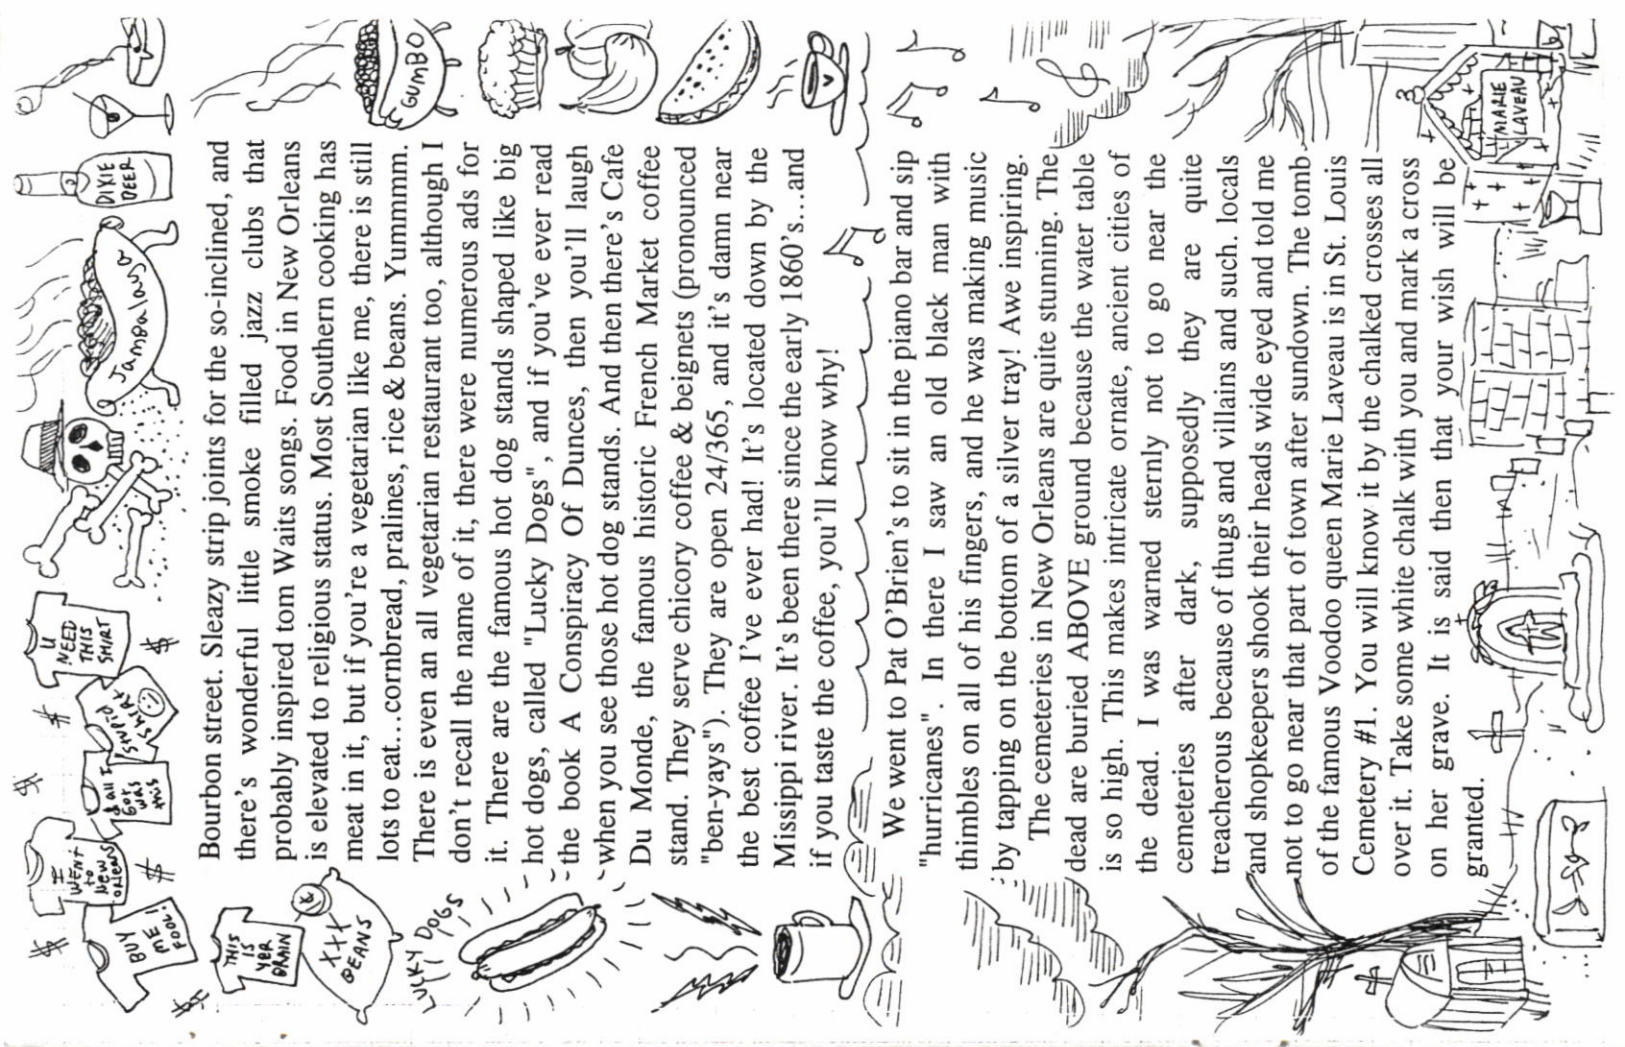 DIXIE
BEER
Jambalaya
U
NEED
THIS
SHIRT
$
$
STUPID
SHIRT
& all I
GOT
WAS
this
$
I
WENT
to
NEW
ORLEANS
$
BUY
ME!
FOOL!
$
$
THIS
IS
YER
BRAIN
XXX
BEANS
LUCKY DOGS
GUMBO
Bourbon street. Sleazy strip joints for the so-inclined, and
there's wonderful little smoke filled jazz clubs that
probably inspired tom Waits songs. Food in New Orleans
is elevated to religious status. Most Southern cooking has
meat in it, but if you're a vegetarian like me, there is still
lots to eat...cornbread, pralines, rice & beans. Yummmm.
There is even an all vegetarian restaurant too, although I
don't recall the name of it, there were numerous ads for
it. There are the famous hot dog stands shaped like big
hot dogs, called "Lucky Dogs", and if you've ever read
the book A Conspiracy Of Dunces, then you'll laugh
when you see those hot dog stands. And then there's Cafe
Du Monde, the famous historic French Market coffee
stand. They serve chicory coffee & beignets (pronounced
"ben-yays"). They are open 24/365, and it's damn near
the best coffee I've ever had! It's located down by the
Missippi river. It's been there since the early 1860's...and
if you taste the coffee, you'll know why!
We went to Pat O'Brien's to sit in the piano bar and sip
"hurricanes". In there I saw an old black man with
thimbles on all of his fingers, and he was making music
by tapping on the bottom of a silver tray! Awe inspiring.
The cemeteries in New Orleans are quite stunning. The
dead are buried ABOVE ground because the water table
is so high. This makes intricate ornate, ancient cities of
the dead. I was warned sternly not to go near the
cemeteries after dark, supposedly they are quite
treacherous because of thugs and villains and such. locals
and shopkeepers shook their heads wide eyed and told me
not to go near that part of town after sundown. The tomb
of the famous Voodoo queen Marie Laveau is in St. Louis
Cemetery #1. You will know it by the chalked crosses all
over it. Take some white chalk with you and mark a cross
on her grave. It is said then that your wish will be
granted.
MARIE
LAVEAU